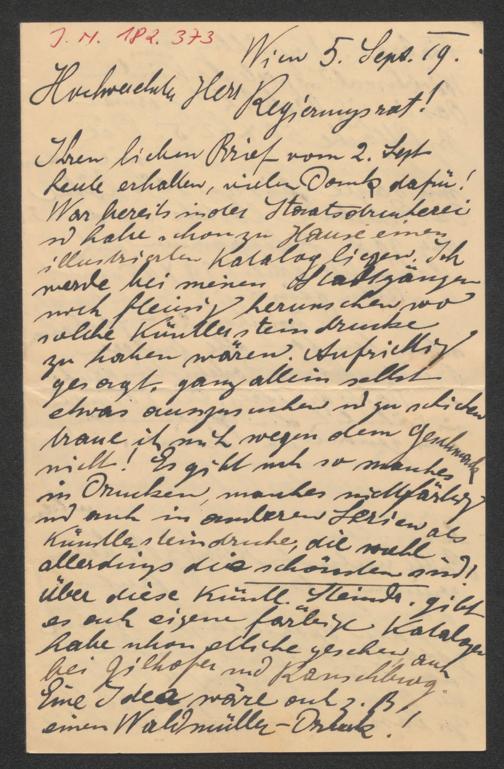 J. N. 182.373
Wien 5. Sept. 19.
Hochverehrter Herr
Regierungsrat!
Ihren lieben Brief vom 2. Sept
heute erhalten, vielen Dank dafür!
War bereits in der Staatsdruckerei
u habe schon zu Hause einen
illustrierten Katalog liegen. Ich
werde bei meinen Stadtgängen
noch fleissig herumsehen, wo
solche Künstlersteindrucke
zu haben wären. Aufrichtig
gesagt, ganz allein selbst
etwas auszusuchen u zu schicken
traue ich mich wegen dem Geschmack
nicht! Es gibt noch so manches
in Drucken, manches nicht färbig
und auch in anderen Serien als
Künstlersteindrucke, die wohl
allerdings die schönsten sind!
über diese Künstl. Steindr. gibt
es auch eigene färbige Kataloge
habe schon etliche gesehen auch
bei Gilhofer und Ranschburg.
Eine Idee wäre auch z. B.
einen Waldmüller-Druck!